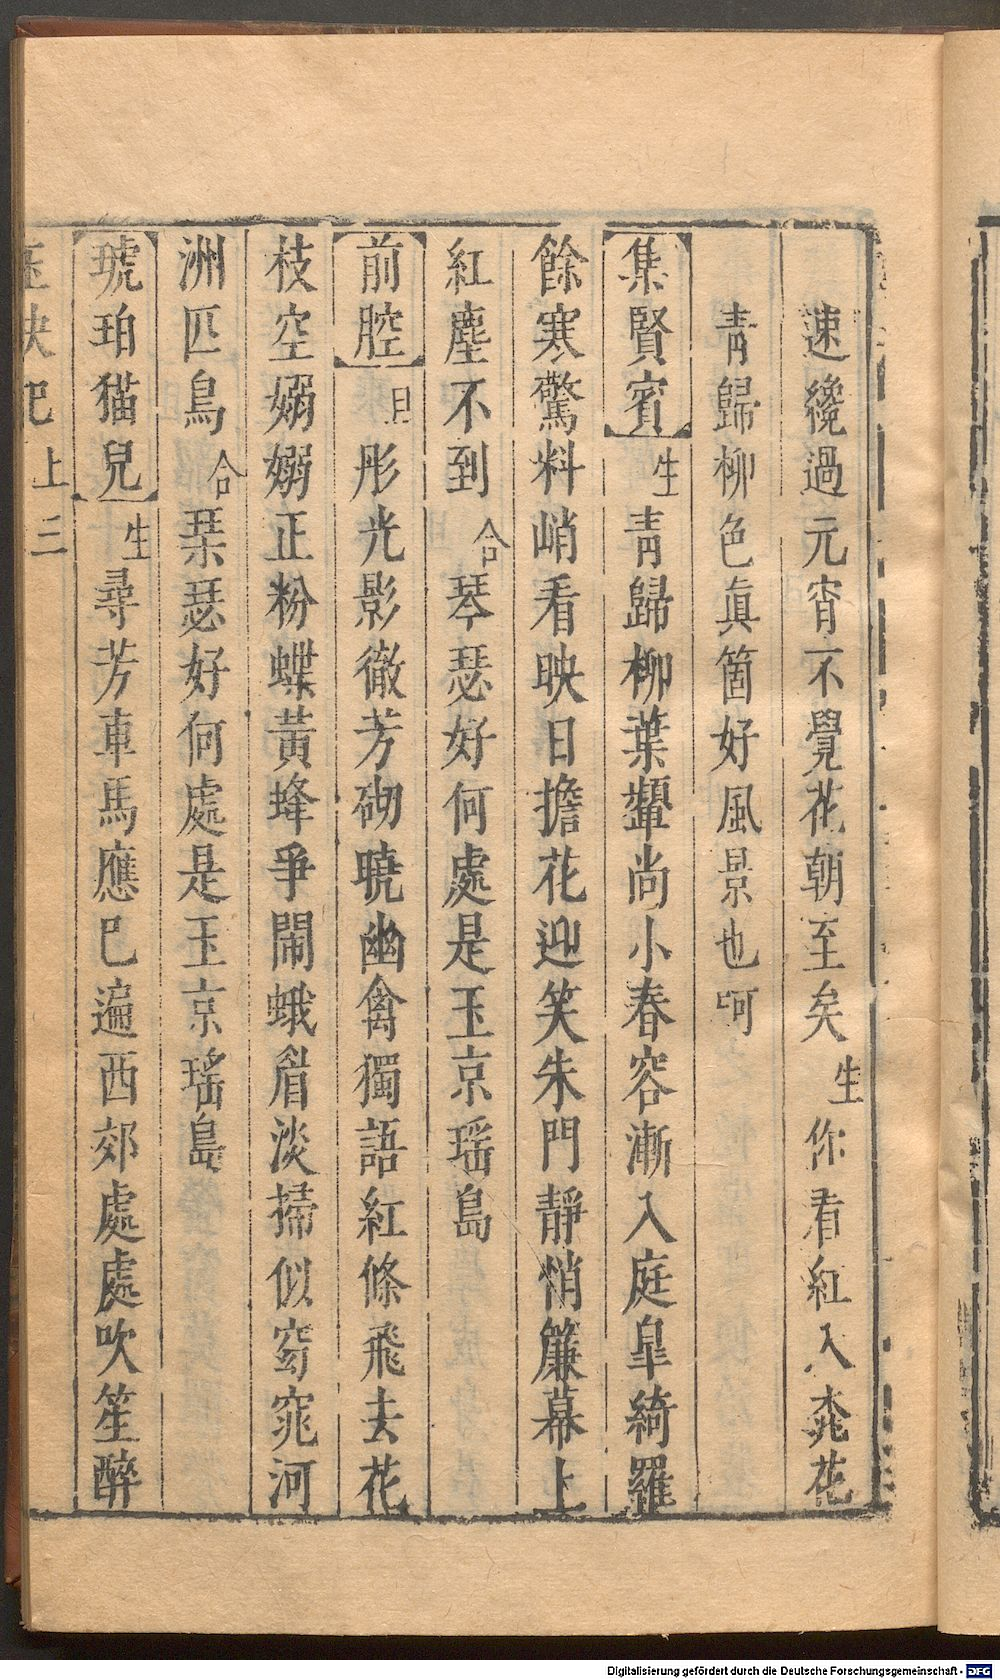 速纔過元宵不覺花朝至矣生你看紅入桃花
青歸柳色眞箇好風景也呵
集賢賓生青歸柳葉顰尚小春容漸入庭皐綺羅
餘寒驚料峭看映日擔花迎笑朱門靜悄簾幕上
紅塵不到合琴瑟好何處是玉京瑶島
前腔旦彤光影徹芳砌曉幽禽獨語紅條飛去花
枝空嫋嫋正粉蝶黃蜂爭鬧蛾眉淡掃似窈窕河
洲匹鳥合琹瑟好何處是玉京瑤島
琥珀猫兒生尋芳車馬應巳遍西郊處處吹笙醉
玉玦記上三
Digitalisierung gefördert durch die Deutsche Forschungsgemeinschaft - DFG